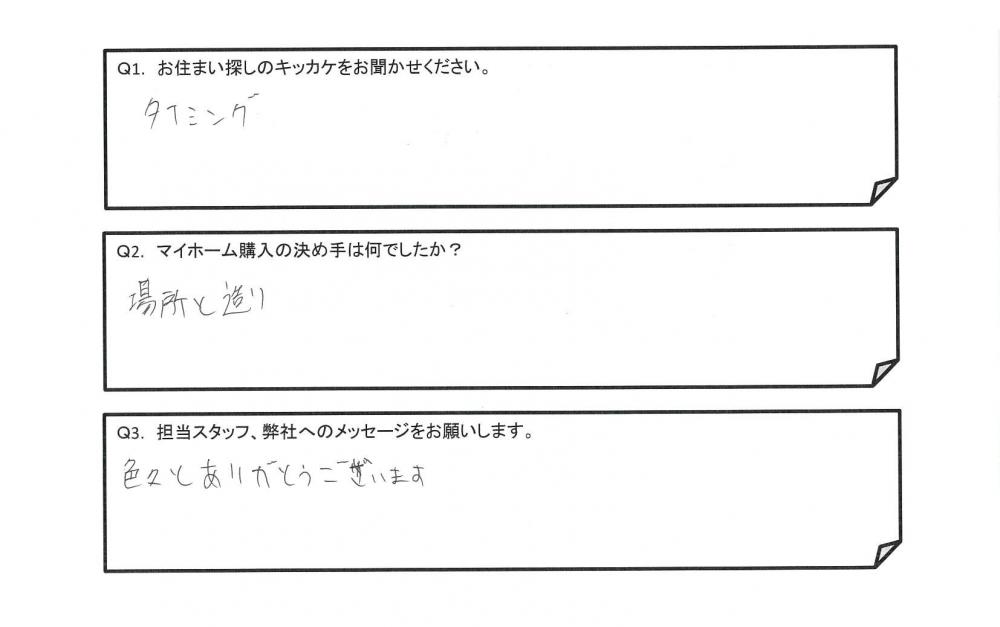 Q1. お住まい探しのキッカケをお聞かせください。
タイミング
Q2. マイホーム購入の決め手は何でしたか？
場所と造り
Q3. 担当スタッフ、弊社へのメッセージをお願いします。
色々とありがとうございます